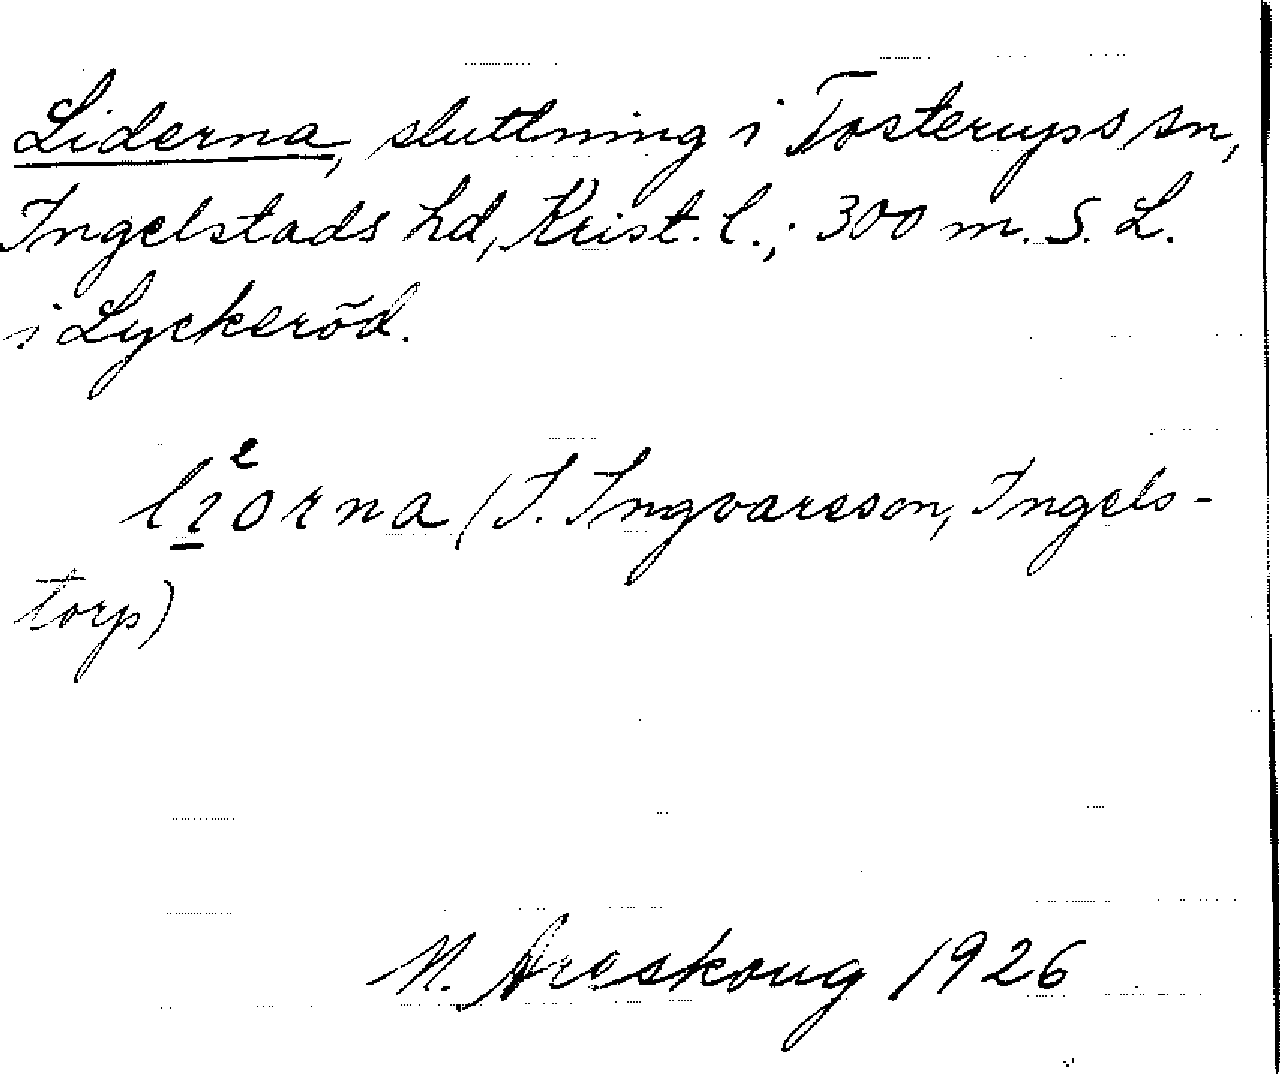 Liderna, sluttning i Tosterups sn,
Ingelstads hd, Krist. l.; 300 m. S. L.
i Lyckeröd.
(J. Ingvarsson, Ingels-
torp)
N. Areskoug 1926